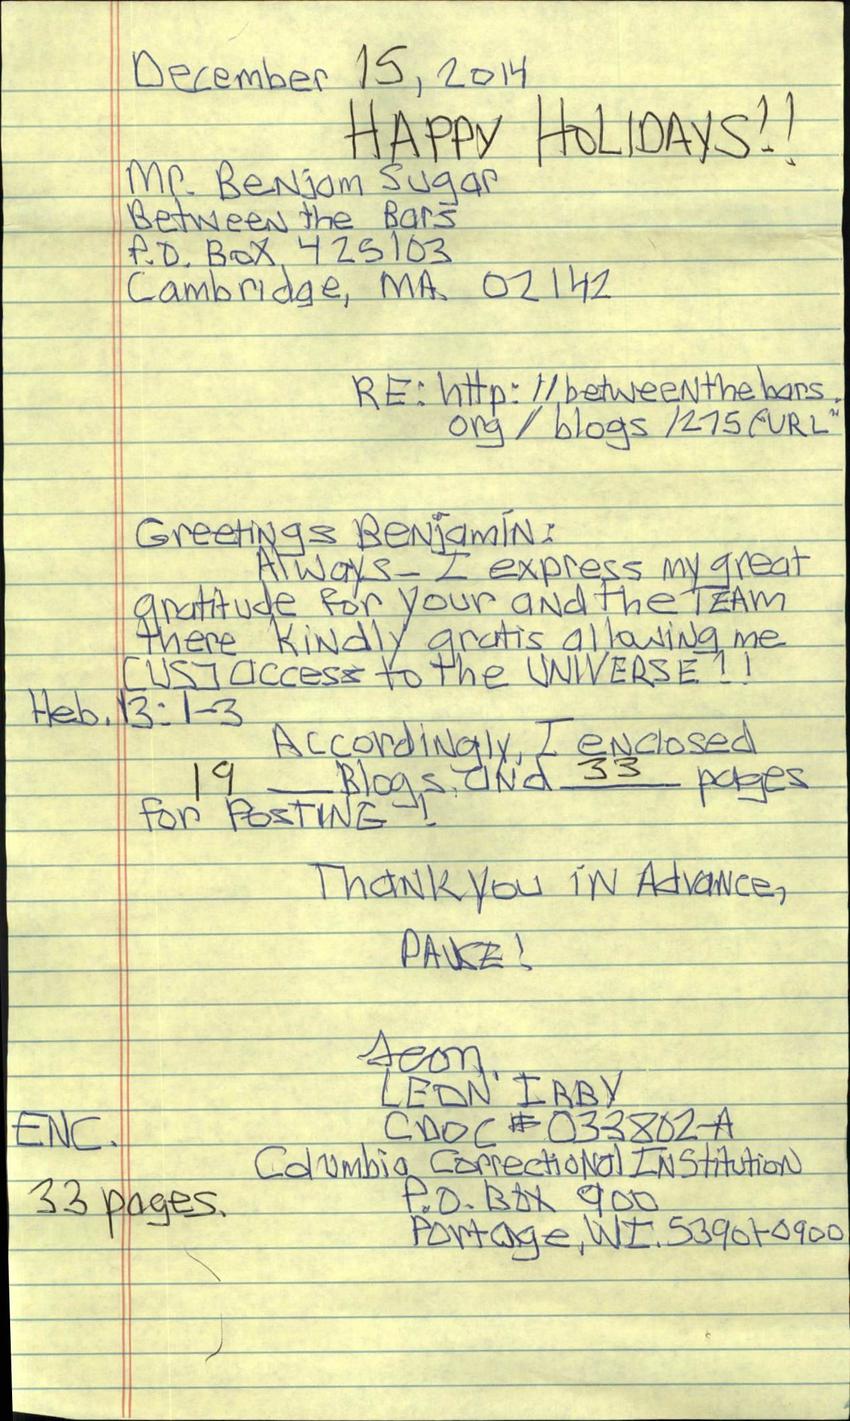 December 15, 2014
HAPPY HOLIDAYS!!
Mr. Benjam Sugar
Between the Bars
P.O. Box 425103
Cambridge, MA. 02142
RE: http://betweenthebars.
org/blogs/1275 "URL"
Greetings Benjamin:
Always - I express my great
gratitude for your and the TEAM
there kindly gratis allowing me
[US] access to the UNIVERSE!!
Heb. 13:1-3
Accordingly, I enclosed
19 Blogs, and 33 pages
for POSTING!
Thank you in Advance,
Leon
LEON IRBY
CDOC # 033802-A
ENC.
Columbia Correctional Institution
33 pages.
P.O. Box 900
Portage, WI. 53901-0900